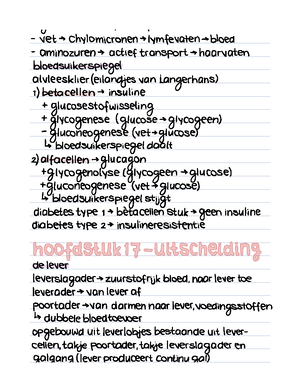 - vet → chylomicronen → lymfevaten → bloed
- aminozuren → actief transport → haarvaten
bloedsuikerspiegel
alvleesklier (eilandjes van Langerhans)
1) betacellen → insuline
+ glucosestofwisseling
+ glycogenese (glucose → glycogeen)
- gluconeogenese (vet → glucose)
↳ bloedsuikerspiegel daalt
2) alfacellen → glucagon
+ glycogenolyse (glycogeen → glucose)
+ gluconeogenese (vet → glucose)
↳ bloedsuikerspiegel stijgt
diabetes type 1 → betacellen stuk → geen insuline
diabetes type 2 → insulineresistentie
hoofdstuk 17 - uitscheiding
de lever
leverslagader → zuurstofrijk bloed, naar lever toe
leverader → van lever af
poortader → van darmen naar lever, voedingsstoffen
↳ dubbele bloedtoevoer
opgebouwd uit leverlobjes bestaande uit lever-
cellen, takje poortader, takje leverslagader en
galgang (lever produceert continu gal)